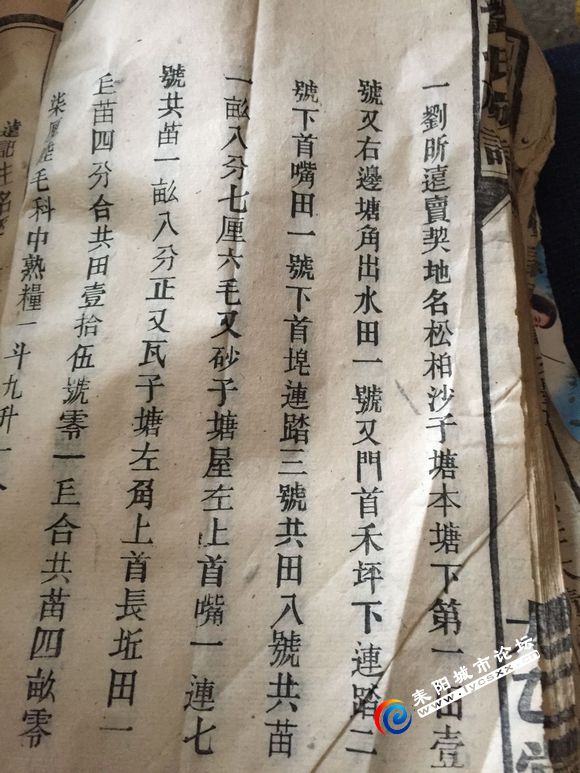 一劉昕遠賣契地名松柏沙子塘本塘下第一出壹
號又右邊塘角出水田一號又門首禾坪下連踏二
號下首嘴田一號下首垸連踏三號共田八號共苗
一畝八分七厘六毛又砂子塘屋左上首嘴一連七
號共苗一畝八分正又瓦子塘左角上首長坵田一
坵苗四分合共田壹拾伍號零一坵合共苗四畝零
柒厘 毛科中熟糧一斗九升一
耒阳城市论坛
www.lycsxx.cn